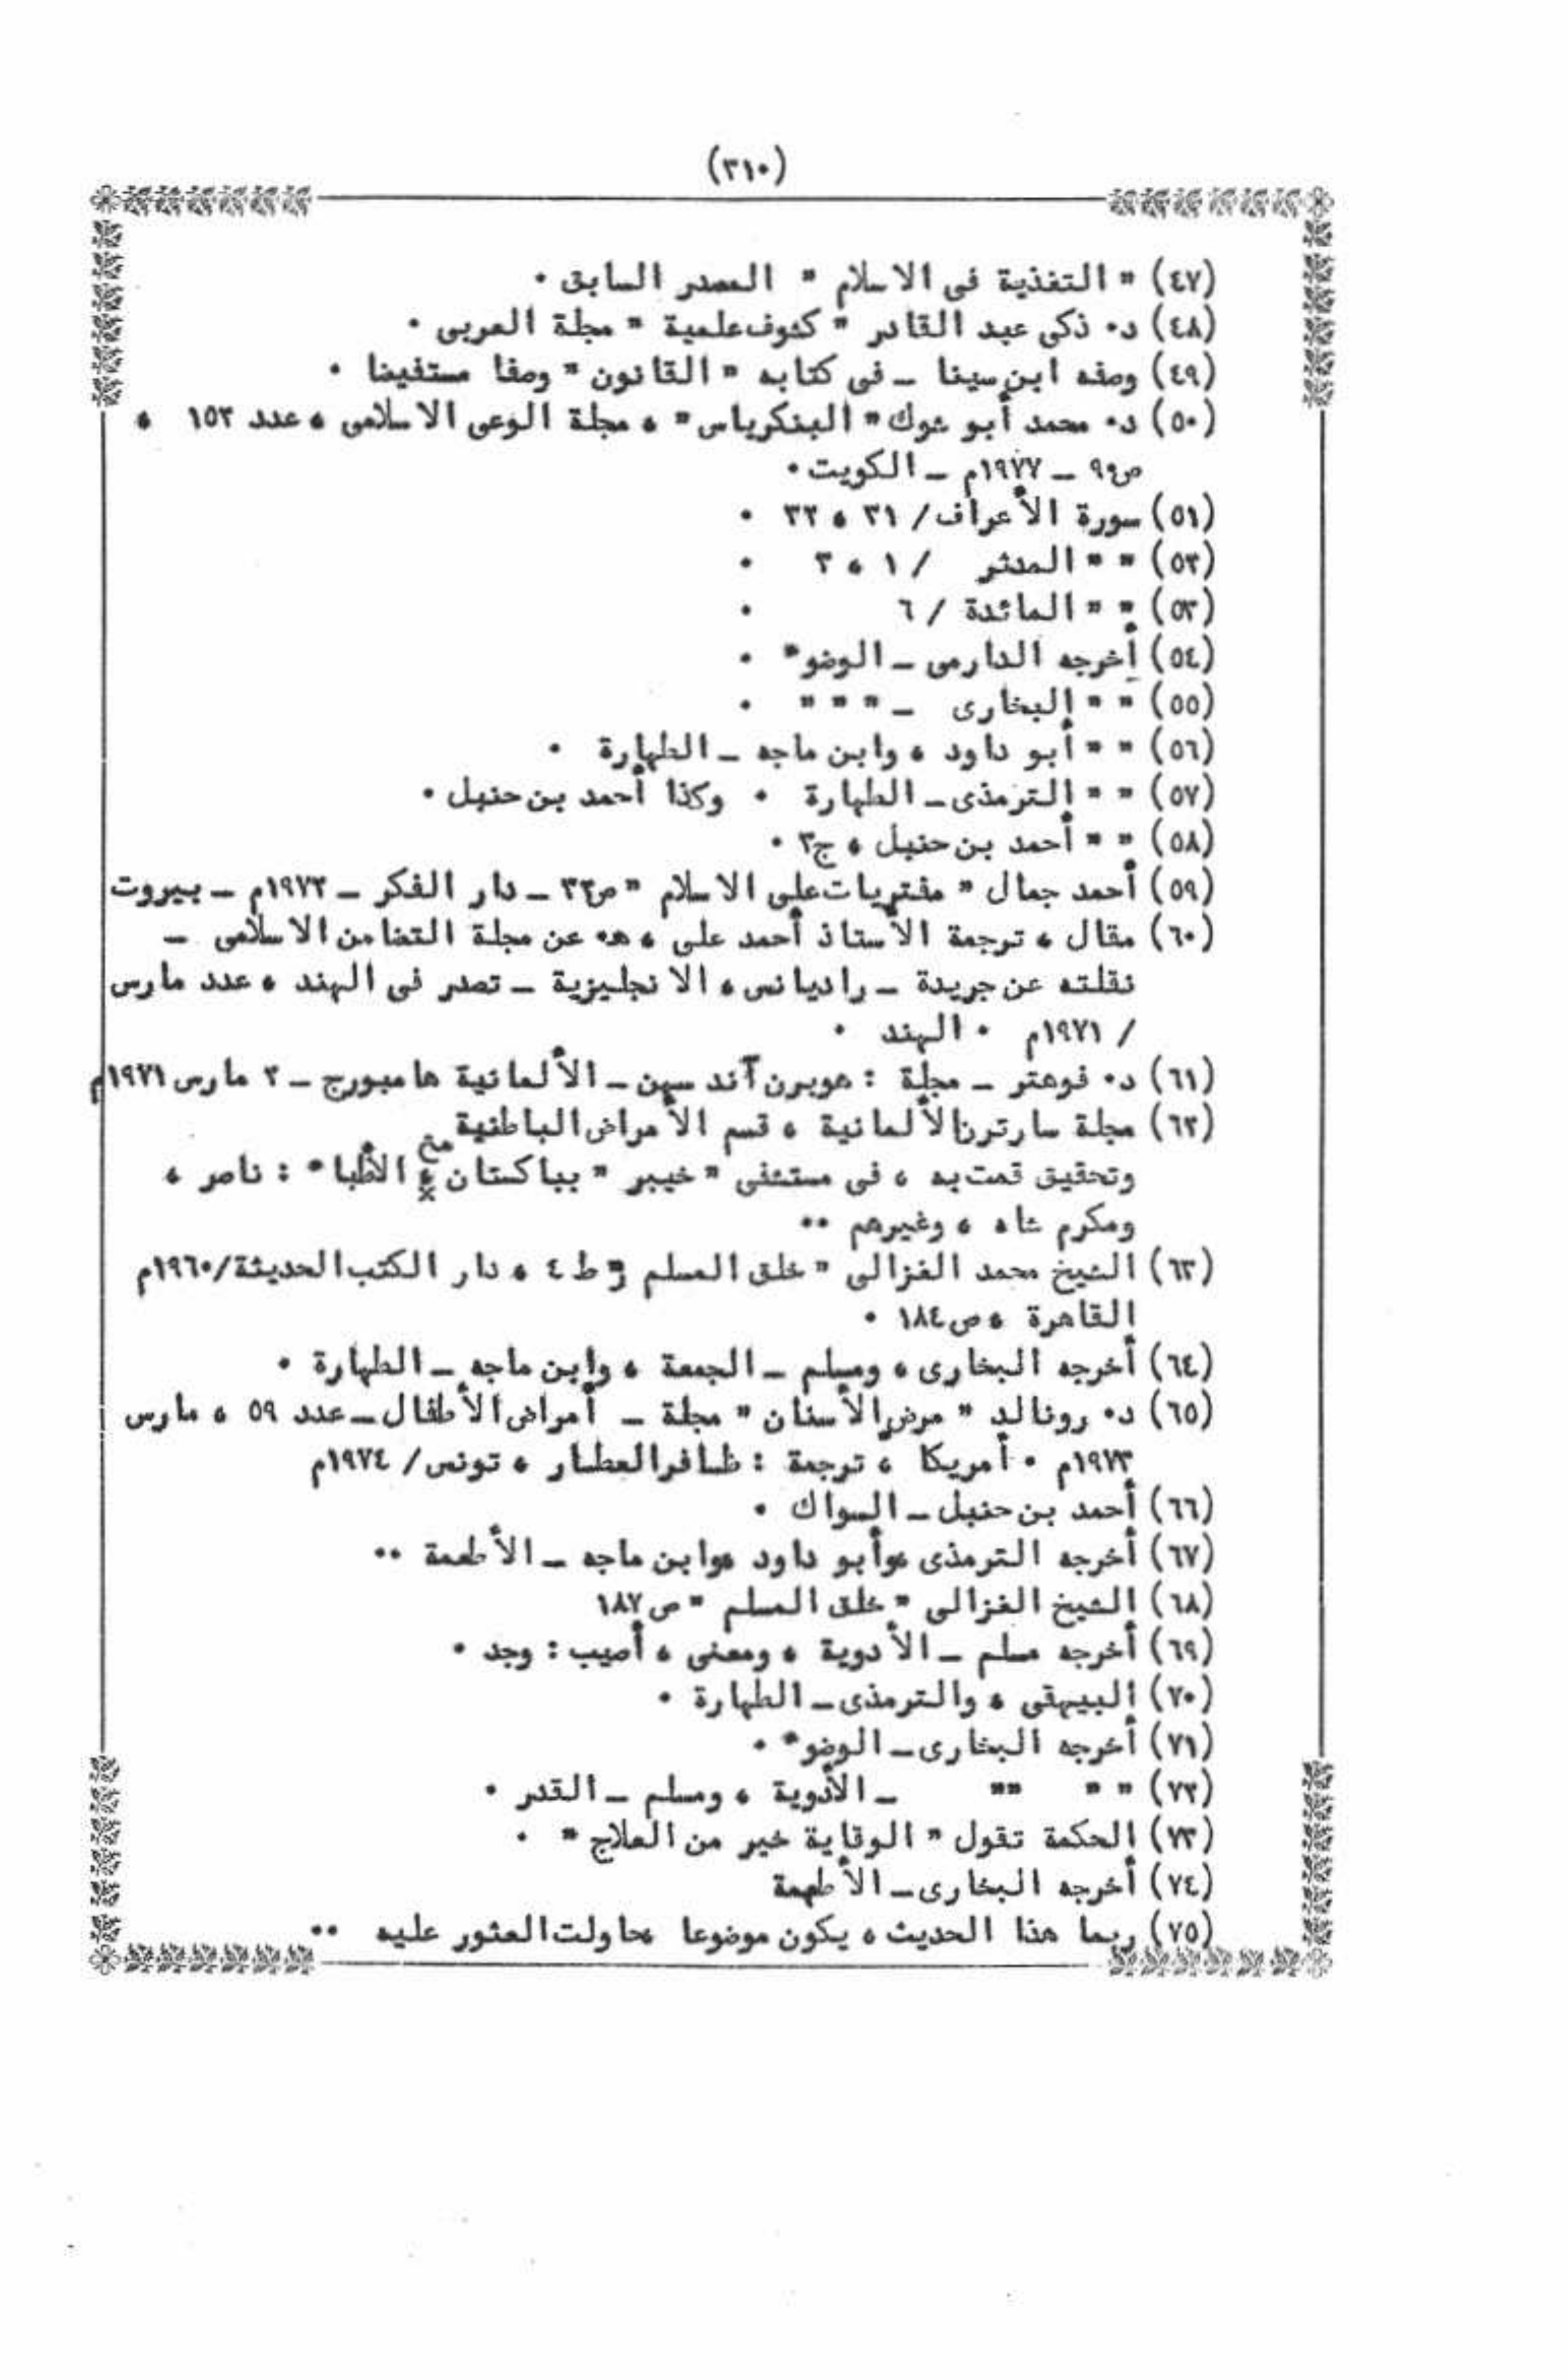 (٣١٠)
(٤٧) " التغذية فى الاسلام " المصدر السابق ٠
(٤٨) د٠ ذكى عبد القادر " كشوف علمية " مجلة العربى ٠
(٤٩) وصفه ابن سينا ـ فى كتابه " القانون " وصفا مستفيضا ٠
(٥٠) د٠ محمد أبو شوك " البنكرياس " ، مجلة الوعى الاسلامى ، عدد ١٥٣ ،
ص٩٩ ـ ١٩٧٧م ـ الكويت ٠
(٥١) سورة الأعراف/ ٣١ ، ٣٢ ٠
(٥٢) " " المدثر / ١ ، ٣ ٠
(٥٣) " " المائدة / ٦ ٠
(٥٤) أخرجه الدارمى ـ الوضوء ٠
(٥٥) " " البخارى ـ " " " ٠
(٥٦) " " أبو داود ، وابن ماجه ـ الطهارة ٠
(٥٧) " " الترمذى ـ الطهارة ٠ وكذا أحمد بن حنبل ٠
(٥٨) " " أحمد بن حنبل ، ج٣ ٠
(٥٩) أحمد جمال " مفتريات على الاسلام " ص٣٣ ـ دار الفكر ـ ١٩٧٣م ـ بيروت
(٦٠) مقال ، ترجمة الأستاذ أحمد على ، هـ٠ عن مجلة التضامن الاسلامى ـ
نقلته عن جريدة ـ راديانس ، الانجليزية ـ تصدر فى الهند ، عدد مارس
/ ١٩٧١م ٠ الهند ٠
(٦١) د٠ فوهتر ـ مجلة : هوبرن آند سهن ـ الألمانية هامبورج ـ ٢ مارس ١٩٧١م
(٦٢) مجلة سارترن الألمانية ، قسم الأمراض الباطنية
وتحقيق قمت به ، فى مستشفى " خيبر " بباكستان مع الأطباء : ناصر ،
ومكرم شاه ، وغيرهم ٠٠
(٦٣) الشيخ محمد الغزالى " خلق المسلم " ط ٤ ، دار الكتب الحديثة/١٩٦٠م
القاهرة ، ص ١٨٤ ٠
(٦٤) أخرجه البخارى ، ومسلم ـ الجمعة ، وابن ماجه ـ الطهارة ٠
(٦٥) د٠ رونالد " مرض الأسنان " مجلة ـ أمراض الأطفال ـ عدد ٥٩ ، مارس
١٩٧٣م ٠ أمريكا ، ترجمة : ظافر العطار ، تونس/ ١٩٧٤م
(٦٦) أحمد بن حنبل ـ السواك ٠
(٦٧) أخرجه الترمذى ،وأبو داود ،وابن ماجه ـ الأطعمة ٠٠
(٦٨) الشيخ الغزالى " خلق المسلم " ص ١٨٧
(٦٩) أخرجه مسلم ـ الأدوية ، ومعنى ، أصيب : وجد ٠
(٧٠) البيهقى ، والترمذى ـ الطهارة ٠
(٧١) أخرجه البخارى ـ الوضوء ٠
(٧٢) " " "" ـ الأدوية ، ومسلم ـ القدر ٠
(٧٣) الحكمة تقول " الوقاية خير من العلاج " ٠
(٧٤) أخرجه البخارى ـ الأطعمة
(٧٥) ربما هذا الحديث ، يكون موضوعا ،حاولت العثور عليه ٠٠